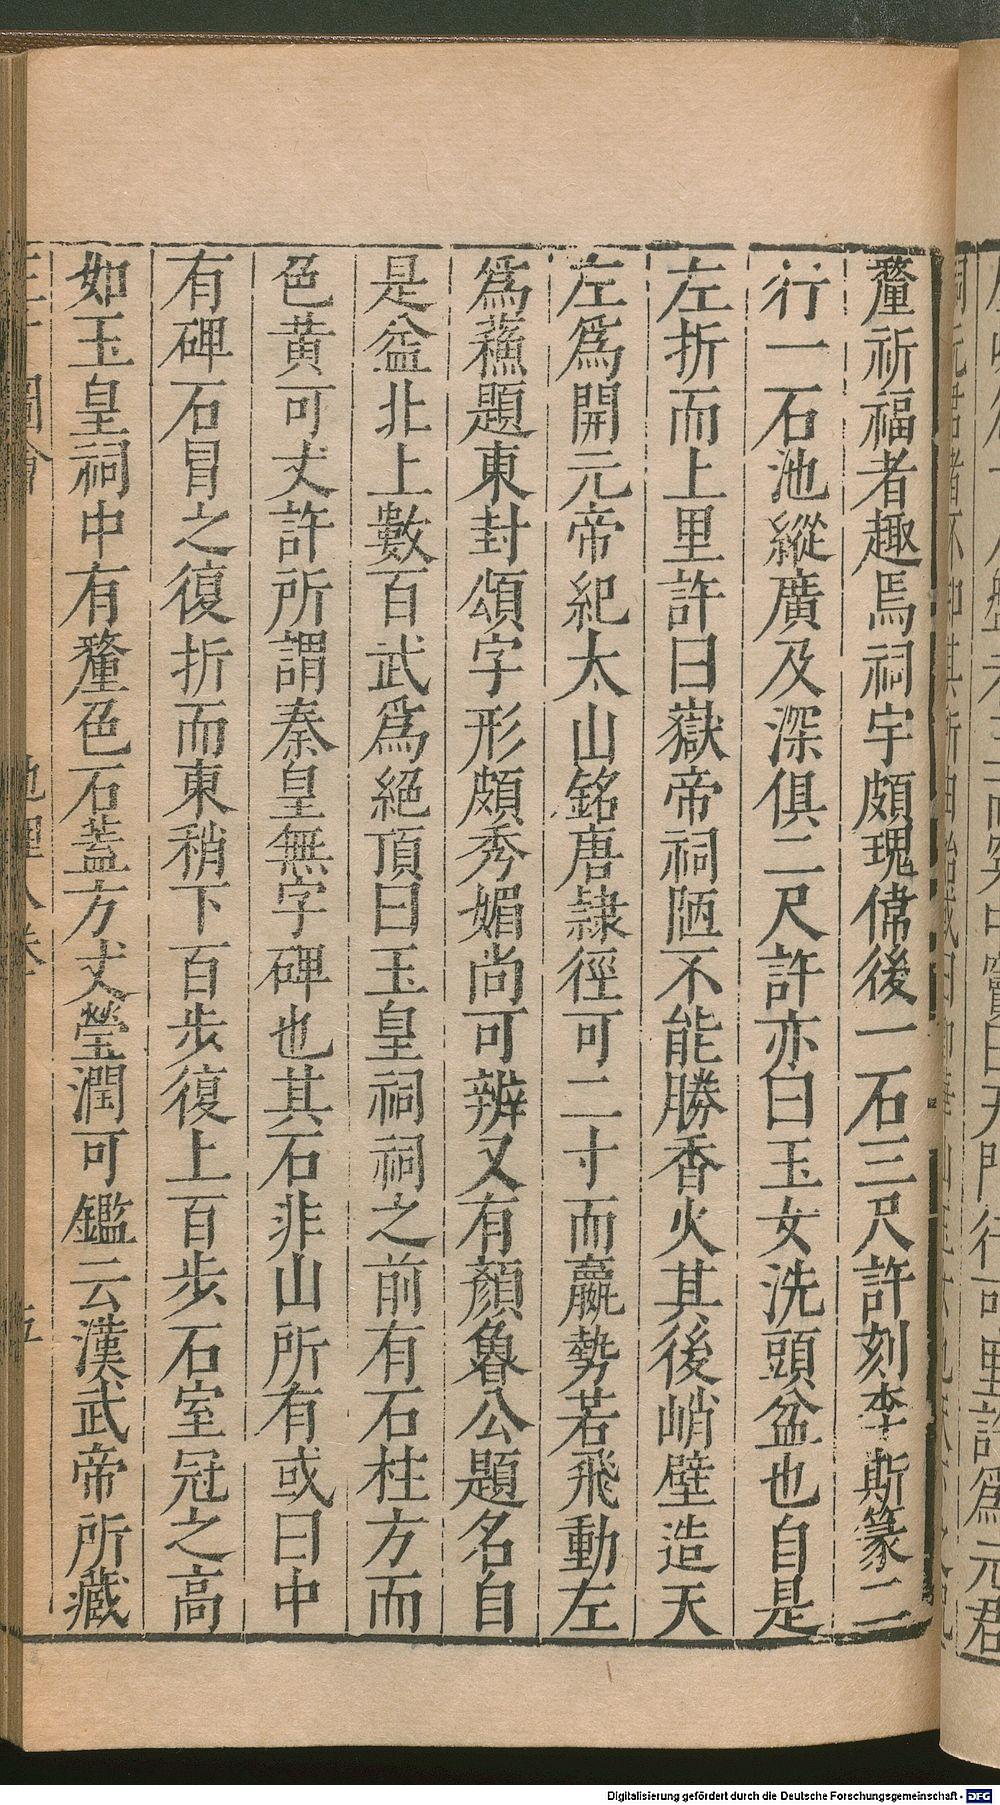 釐祈福者趣焉祠宇頗瑰偉後一石三尺許刻李斯篆二
行一石池縱廣及深俱二尺許亦曰玉女洗頭盆也自是
左折而上里許曰嶽帝祠陋不能勝香火其後峭壁造天
左爲開元帝紀太山銘唐隷徑可二寸而贏勢若飛動左
爲蘓題東封頌字形頗秀媚尚可辨又有顏魯公題名自
是盆北上數百武爲絕頂曰玉皇祠祠之前有石柱方而
色黄可丈許所謂秦皇無字碑也其石非山所有或曰中
有碑石冒之復折而東稍下百步復上百步石室冠之高
如玉皇祠中有釐色石蓋方丈瑩潤可鑑云漢武帝所藏
圖會 地理八卷 五
天門行可里許爲元君
Digitalisierung gefördert durch die Deutsche Forschungsgemeinschaft - DFG